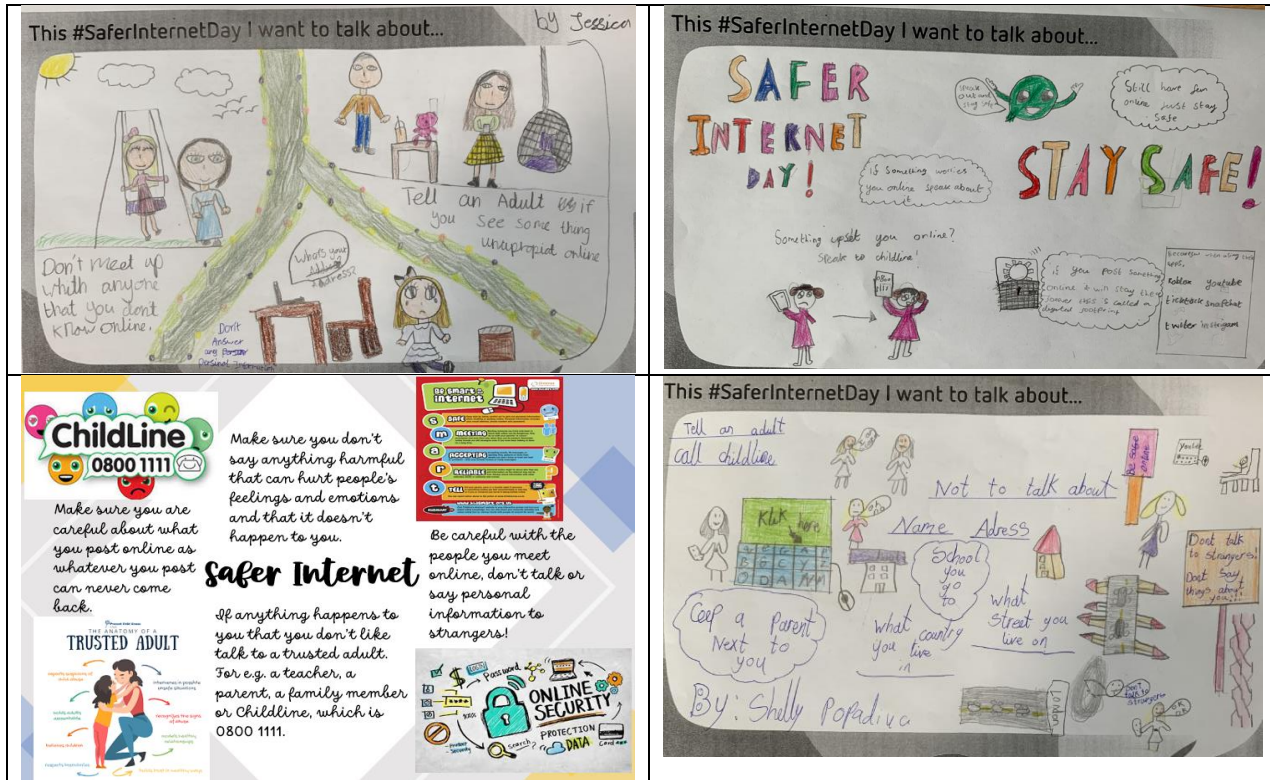 This #SaferInternetDay I want to talk about...
by Jessica
Tell an Adult if
you See some thing
unapropiat online
Don't meet up
whith anyone
that you don't
know online.
Whats your
address?
Don't
Answer
any
Persinal Information
This #SaferInternetDay I want to talk about...
SAFER
INTERNET
DAY!
Speak
out and
stay safe
Still have fun
online just stay
safe
STAY SAFE!
if Something worries
you online speak about
it
Something upset you online?
Speak to childline!
if you post something
online it will stay there
forever this is called a
digital footprint
when using such
apps.
roblox youtube
snapchat
twitter instagram
ChildLine
0800 1111
Make sure you are
careful about what
you post online as
whatever you post
can never come
back.
THE ANATOMY OF A
TRUSTED ADULT
Make sure you don't
say anything harmful
that can hurt people's
feelings and emotions
and that it doesn't
happen to you.
Safer Internet
If anything happens to
you that you don't like
talk to a trusted adult.
For e.g. a teacher, a
parent, a family member
or Childline, which is
0800 1111.
BE SMART
internet
S SAFE
m MEETING
a ACCEPTING
r RELIABLE
t TELL
Be careful with the
people you meet
online, don't talk or
say personal
information to
strangers!
Password
ONLINE
SECURITY
PROTECTION
DATA
search
This #SaferInternetDay I want to talk about...
Tell an adult
call childline
Not to talk about
Name Adress
Klik
here
School
you
go
to
what
Street you
live on
what country
you live
in
Ceep a Parent
Next to
you
be safe
online
Dont talk
to strangers!
Dont Say
things about
you...
London
Don't
talk to
strangers
OK
OK